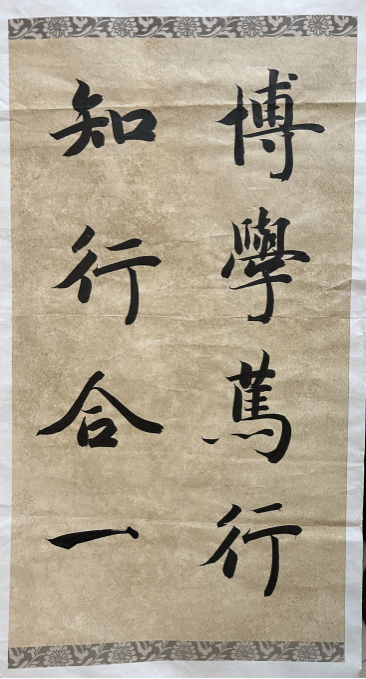 博學篤行
知行合一